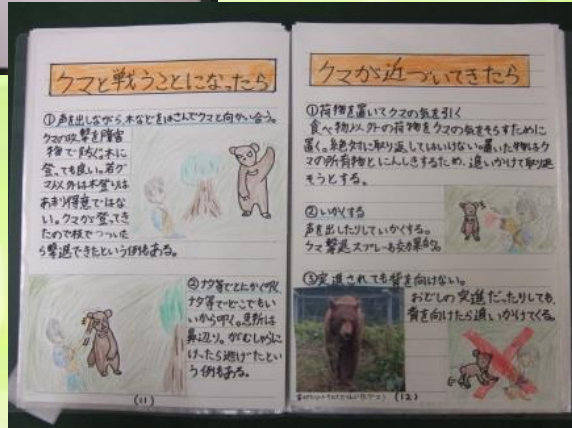 クマと戦うことになったら
①声を出しながら、木などをはさんでクマと向かい合う。
クマの攻撃を障害
物で防ぐ。木に
登っても良い。若グ
マ以外は木登りは
あまり得意ではな
い。クマが登ってき
たので枝でつついた
ら撃退できたという例もある。
②ナタ等でとにかく叩く。
ナタ等でどこでもい
いから叩く。急所は
鼻辺り。がむしゃらに
けったら逃げたとい
う例もある。
(11)
クマが近づいてきたら
①荷物を置いてクマの気を引く
食べ物以外の荷物をクマの気をそらすために
置く。絶対に取り返してはいけない。置いた物はク
マの所有物とにんしきするため、追いかけて取り返
そうとする。
②いかくする
声を出したりしていかくする。
クマ撃退スプレーも効果的。
③突進されても背を向けない。
おどしの突進だったりしても、
背を向けたら追いかけてくる。
(12)